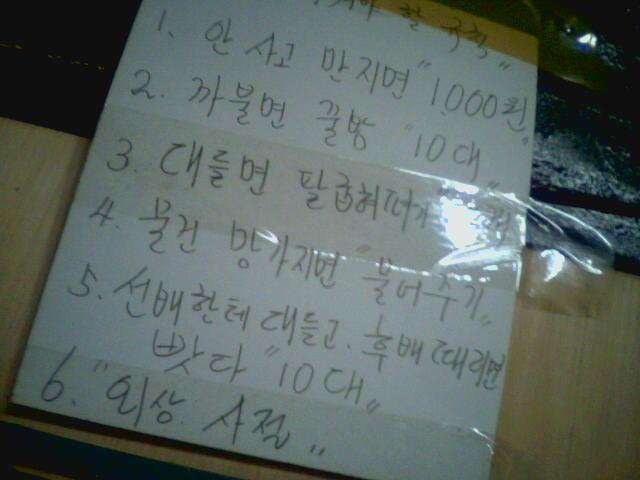 할 규칙"
1. 안 사고 만지면 "1,000원"
2. 까불면 꿀밤 "10대"
3. 대들면 팔굽혀펴기
4. 물건 망가지면 "물어주기"
5. 선배한테 대들고, 후배 때리면
빳다 "10대"
6. "외상 사절"